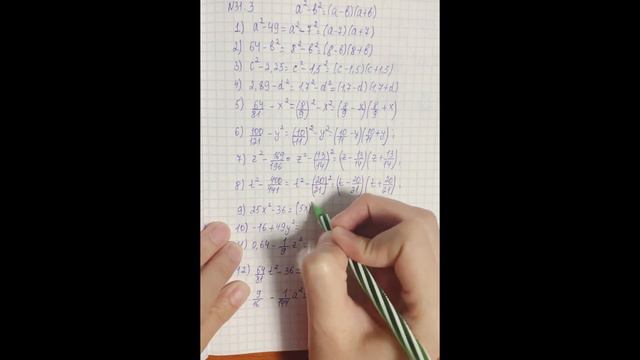 N31.3 a²-b²=(a-b)(a+b)
1) a²-49=a²-7²=(a-7)(a+7)
2) 64-b²=8²-b²=(8-b)(8+b)
3) c²-2,25=c²-1,5²=(c-1,5)(c+1,5)
4) 2,89-d²=1,7²-d²=(1,7-d)(1,7+d)
5) 64/81-x²=(8/9)²-x²=(8/9-x)(8/9+x)
6) 100/121-y²=(10/11)²-y²=(10/11-y)(10/11+y);
7) z²-169/196=z²-(13/14)²=(z-13/14)(z+13/14);
8) t²-400/441=t²-(20/21)²=(t-20/21)(t+20/21);
9) 25x²-36=(5x
10) -16+49y²=
11) 0,64-1/9z²=
12) 64/81t²-36=
9/16-1/144a²=